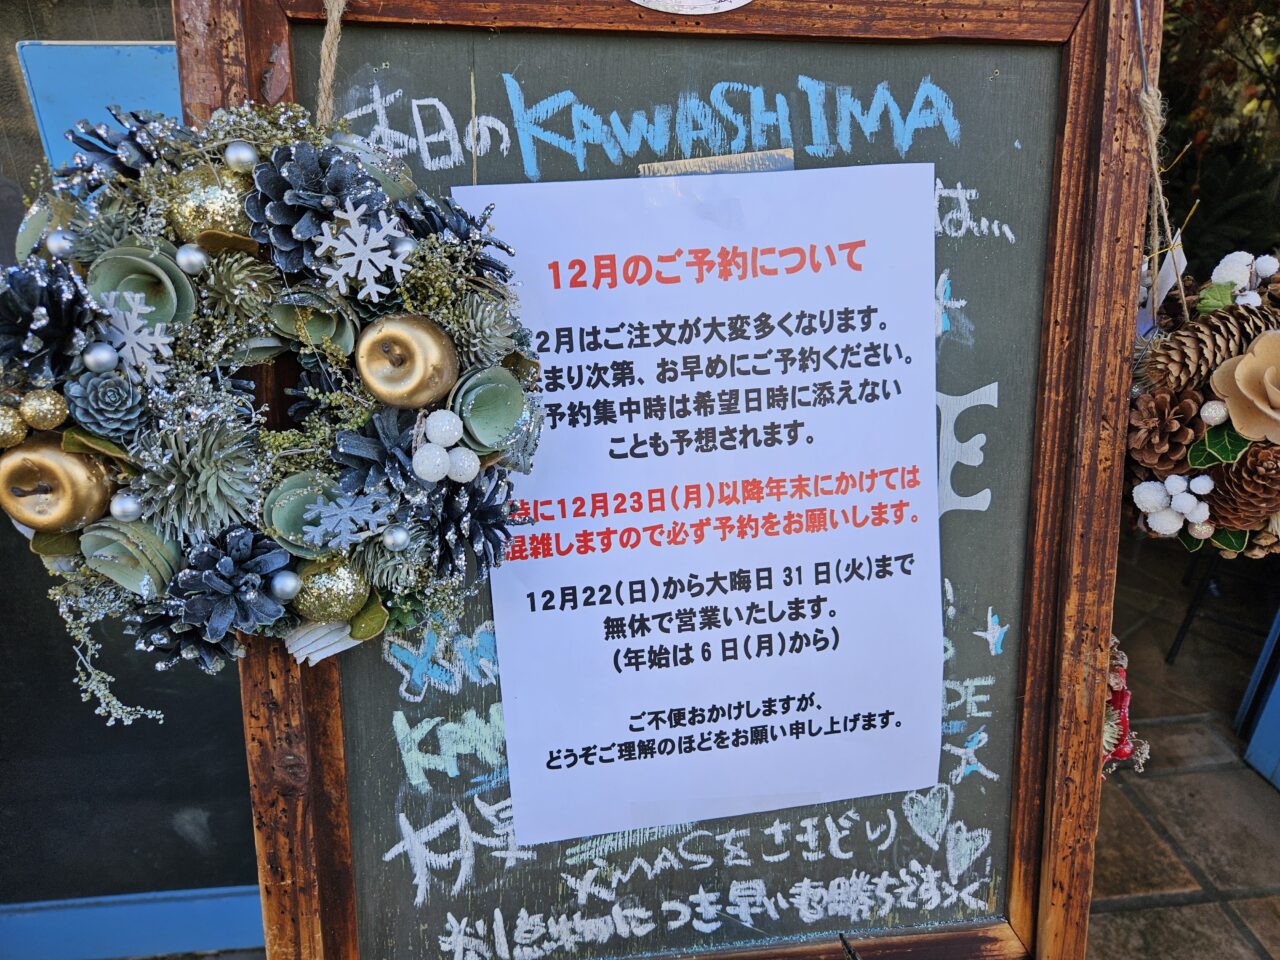 本日のKAWASHIMA
は...
12月のご予約について
2月はご注文が大変多くなります。
まり次第、お早めにご予約ください。
予約集中時は希望日時に添えない
ことも予想されます。
特に12月23日(月)以降年末にかけては
混雑しますので必ず予約をお願いします。
12月22(日)から大晦日31日(火)まで
無休で営業いたします。
(年始は6日(月)から)
ご不便おかけしますが、
どうぞご理解のほどをお願い申し上げます。
XMASまさどり
早い者勝ちです